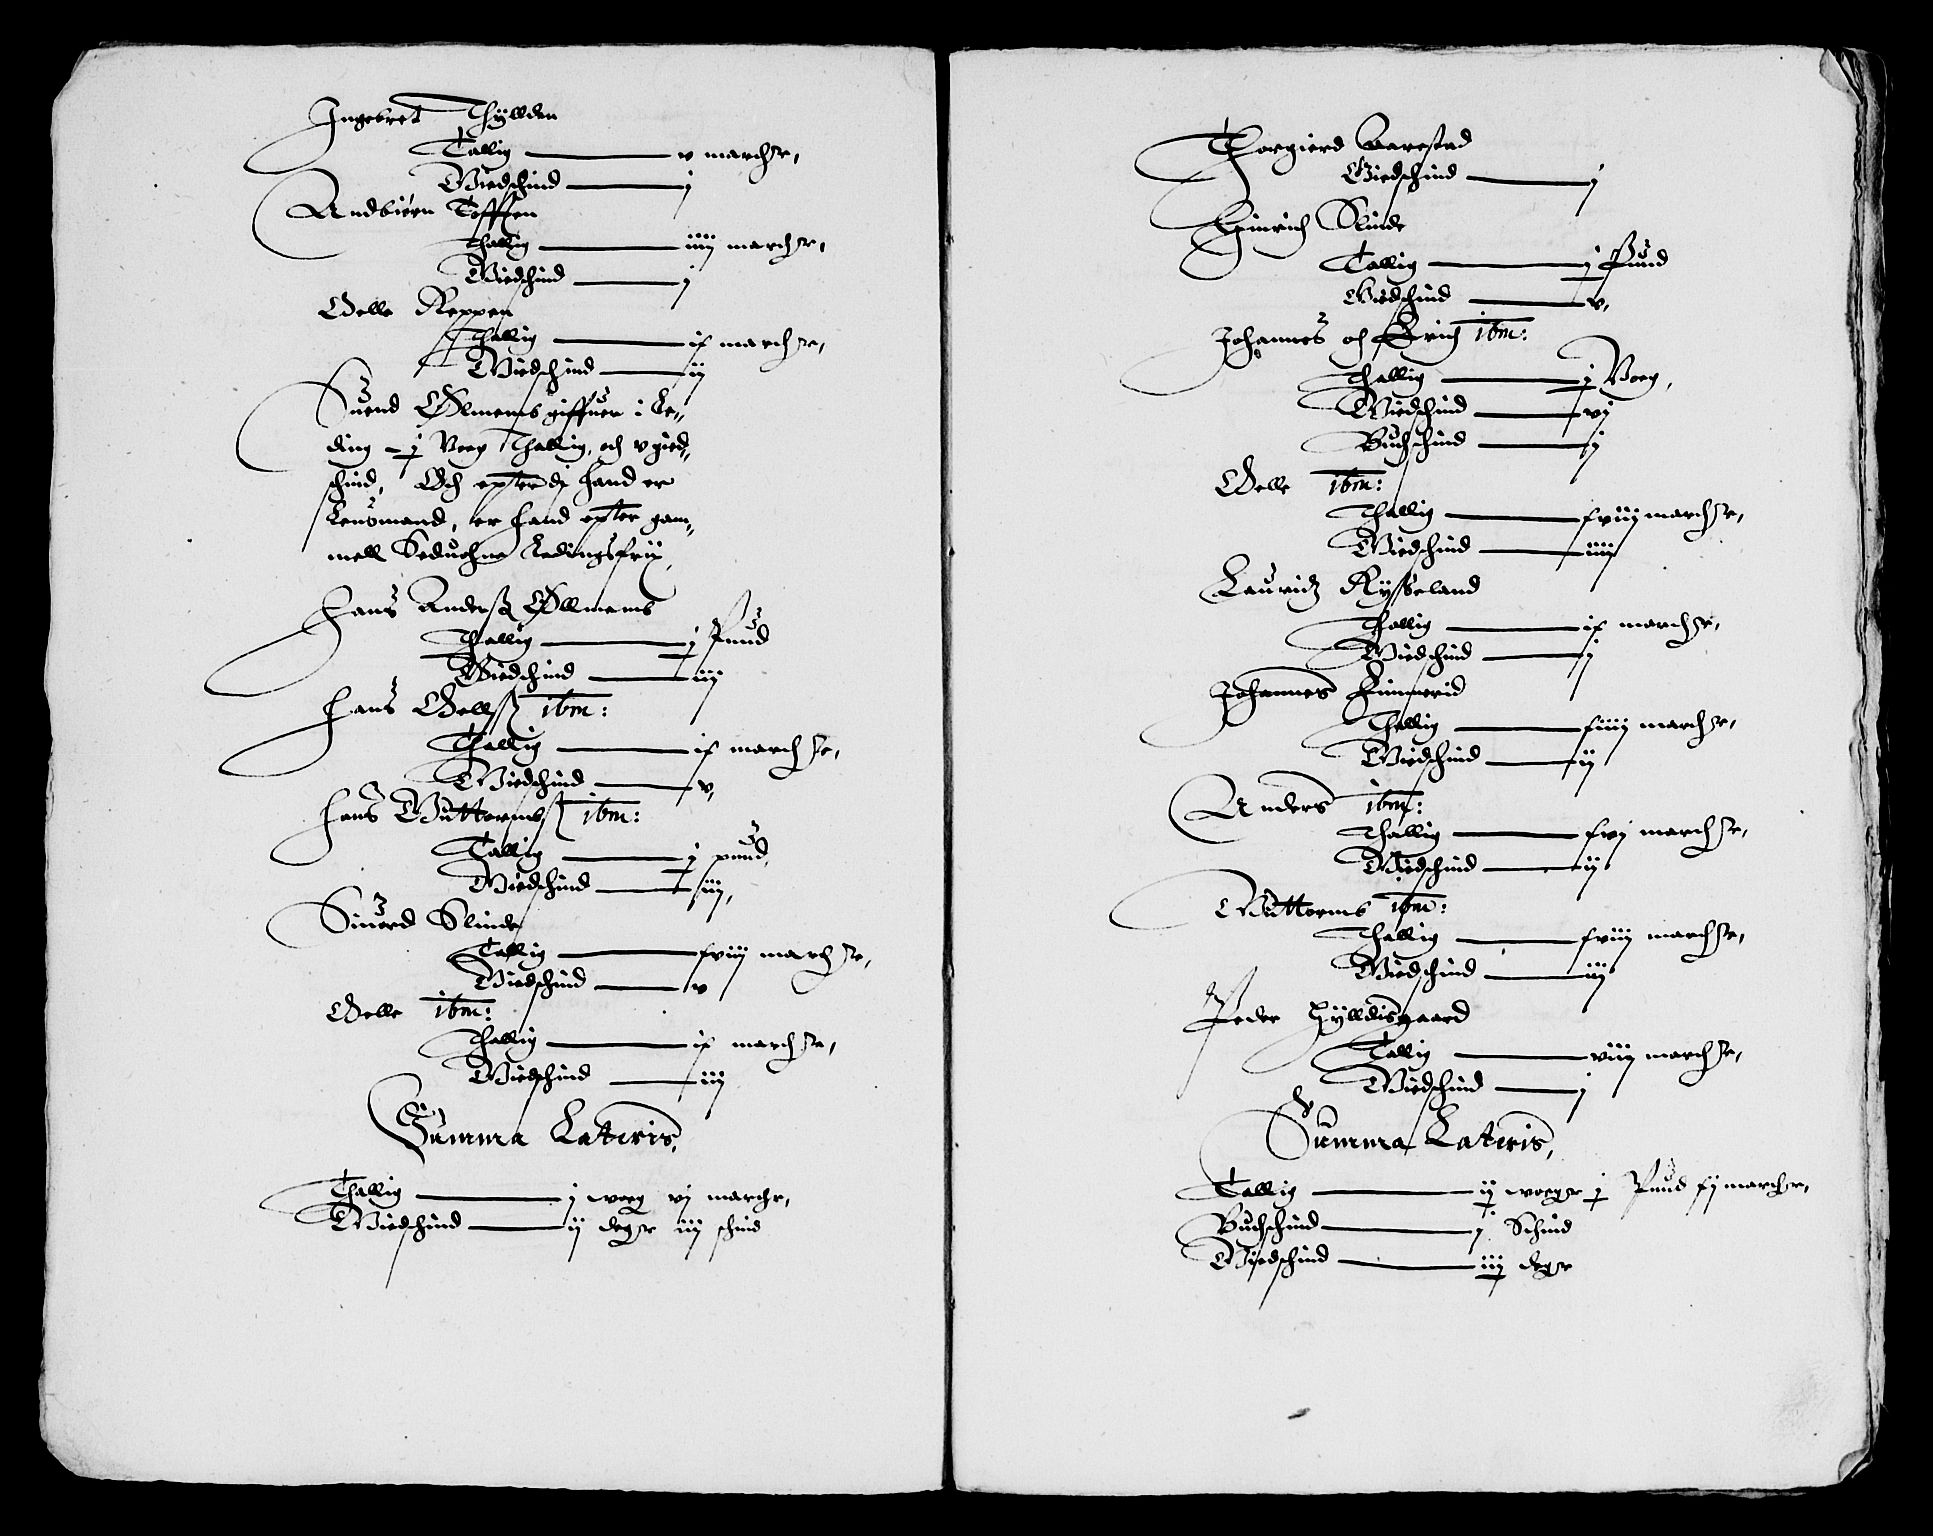 Ingebret Thyllden
Tallig — v marchr,
Giedschind — j
Andbiörn Tofften
Thallig — iiij marchr,
Giedschind — j
Oelle Reppen
Thallig — ix marchr,
Giedschind — ij
Suend Ølmems giffuer i Le-
ding — j Voeg Thallig, och v gied-
schind, Och epterdj hand er
Lensmand, er hand epter gam-
mell Seduohne Ledingsfrij,
Hans Anderß Øllmems
Thallig — j Pund
Giedschind — iij
Hans Oellß ibm:
Thallig — ix marchr,
Giedschind — v,
Hans Guttormß ibm:
Tallig — j pund,
Giedschind — iij,
Siuerd Slinde
Tallig — xviij marchr,
Giedschind — v
Oelle ibm:
Thallig — ix marchr,
Giedschind — iij
Summa Lateris,
Thallig — j woeg vj marchr,
Giedschind — ij degr iij schind
Thorgierd Aarestad
Giedschind — j
Hinrich Slinde
Tallig — j Pund
Giedschind — v,
Johannes och Erich ibm:
Thallig — j Voeg,
Giedschind — vj
Buchschind — j
Oelle ibm:
Thallig — xviij marchr,
Giedschind — iiij
Lauridz Rysseland
Thallig — ix marchr,
Giedschind — j
Johannes Fimmerid
Thallig — xiiij marchr,
Giedschind — ij
Anders ibm:
Thallig — xvj marchr,
Giedschind — ij
Guttorms ibm:
Thallig — xviij marchr,
Giedschind — iij
Peder Hylldisgaard
Tallig — viij marchr,
Giedschind — j
Summa Lateris,
Tallig — ij woegr j Pund xj marchr,
Buchschind — j Schind
Giedschind — iij degr